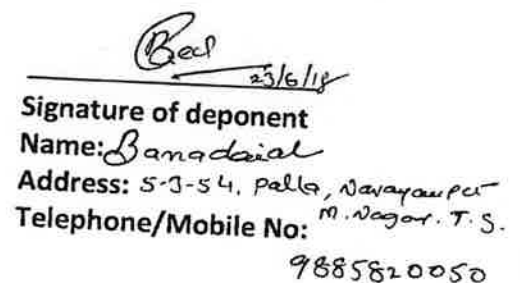 23/6/18
Signature of deponent
Name: Banadaial
Address: 5-3-54, Palla, Narayanpet
M. Nagar. T. S.
Telephone/Mobile No:
9885820050